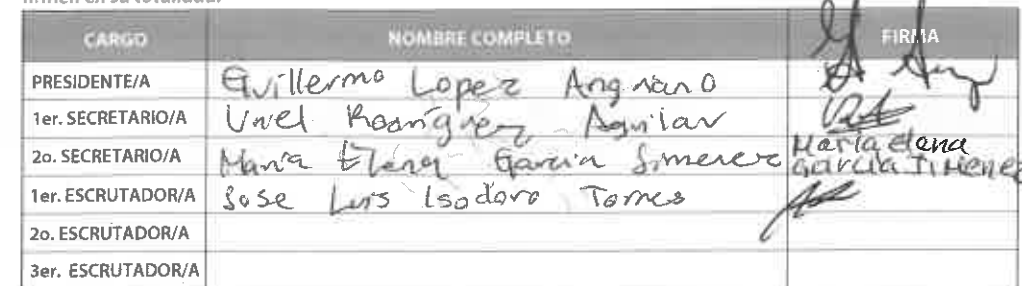 CARGO NOMBRE COMPLETO FIRMA
PRESIDENTE/A Guillermo Lopez Anguiano
1er. SECRETARIO/A Uriel Rodríguez Aguilar
2o. SECRETARIO/A María Elena Garcia Jimenez María Elena
García Jimenez
1er. ESCRUTADOR/A Jose Luis Isodoro Torres
2o. ESCRUTADOR/A
3er. ESCRUTADOR/A